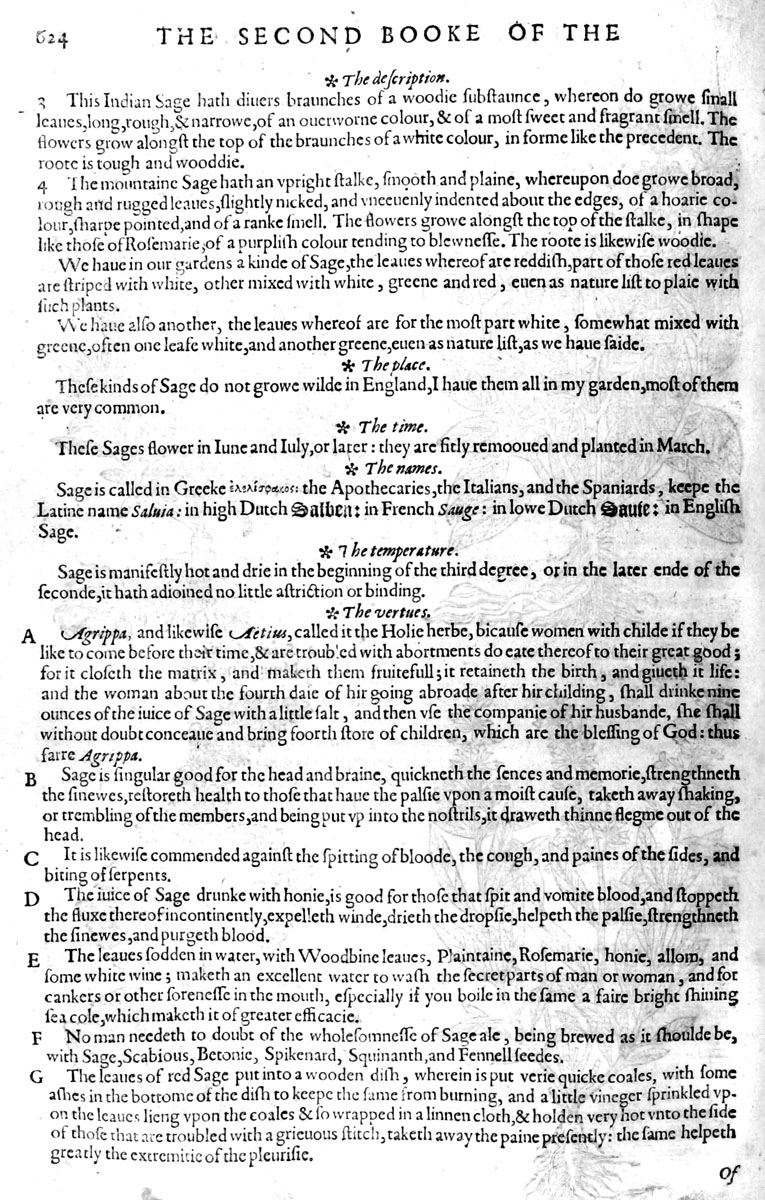 624 THE SECOND BOOKE OF THE
❧ The deſcription.
3 This Indian Sage hath diuers braunches of a woodie ſubſtaunce, whereon do growe ſmall
leaues, long, rough, & narrowe, of an ouerworne colour, & of a moſt ſweet and fragrant ſmell. The
flowers grow alongſt the top of the braunches of a white colour, in forme like the precedent. The
roote is tough and wooddie.
4 The mountaine Sage hath an vpright ſtalke, ſmooth and plaine, whereupon doe growe broad,
rough and rugged leaues, ſlightly nicked, and vneeuenly indented about the edges, of a hoarie co-
lour, ſharpe pointed, and of a ranke ſmell. The flowers growe alongſt the top of the ſtalke, in ſhape
like thoſe of Roſemarie, of a purpliſh colour tending to blewneſſe. The roote is likewiſe woodie.
We haue in our gardens a kinde of Sage, the leaues whereof are reddiſh, part of thoſe red leaues
are ſtriped with white, other mixed with white, greene and red, euen as nature liſt to plaie with
ſuch plants.
We haue alſo another, the leaues whereof are for the moſt part white, ſomewhat mixed with
greene, often one leafe white, and another greene, euen as nature liſt, as we haue ſaide.
❧ The place.
Theſe kinds of Sage do not growe wilde in England, I haue them all in my garden, moſt of them
are very common.
❧ The time.
Theſe Sages flower in Iune and Iuly, or later: they are fitly remooued and planted in March.
❧ The names.
Sage is called in Greeke ἐλελίσφακος: the Apothecaries, the Italians, and the Spaniards, keepe the
Latine name Saluia: in high Dutch Salben: in French Sauge: in lowe Dutch Sauie: in Engliſh
Sage.
❧ The temperature.
Sage is manifeſtly hot and drie in the beginning of the third degree, or in the later ende of the
ſeconde, it hath adioined no little aſtriction or binding.
❧ The vertues.
A Agrippa, and likewiſe Aetius, called it the Holie herbe, bicauſe women with childe if they be
like to come before their time, & are troubled with abortments do eate thereof to their great good;
for it cloſeth the matrix, and maketh them fruitefull; it retaineth the birth, and giueth it life:
and the woman about the fourth daie of hir going abroade after hir childing, ſhall drinke nine
ounces of the iuice of Sage with a little ſalt, and then vſe the companie of hir husbande, ſhe ſhall
without doubt conceaue and bring foorth ſtore of children, which are the bleſſing of God: thus
farre Agrippa.
B Sage is ſingular good for the head and braine, quickneth the ſences and memorie, ſtrengthneth
the ſinewes, reſtoreth health to thoſe that haue the palſie vpon a moiſt cauſe, taketh away ſhaking,
or trembling of the members, and being put vp into the noſtrils, it draweth thinne flegme out of the
head.
C It is likewiſe commended againſt the ſpitting of bloode, the cough, and paines of the ſides, and
biting of ſerpents.
D The iuice of Sage drunke with honie, is good for thoſe that ſpit and vomite blood, and ſtoppeth
the fluxe thereof incontinently, expelleth winde, drieth the dropſie, helpeth the palſie, ſtrengthneth
the ſinewes, and purgeth blood.
E The leaues ſodden in water, with Woodbine leaues, Plaintaine, Roſemarie, honie, allom, and
ſome white wine; maketh an excellent water to waſh the ſecret parts of man or woman, and for
cankers or other ſoreneſſe in the mouth, eſpecially if you boile in the ſame a faire bright ſhining
ſea cole, which maketh it of greater efficacie.
F No man needeth to doubt of the wholeſomneſſe of Sage ale, being brewed as it ſhoulde be,
with Sage, Scabious, Betonie, Spikenard, Squinanth, and Fennell ſeedes.
G The leaues of red Sage put into a wooden diſh, wherein is put verie quicke coales, with ſome
aſhes in the bottome of the diſh to keepe the ſame from burning, and a little vineger ſprinkled vp-
on the leaues lieng vpon the coales & ſo wrapped in a linnen cloth, & holden very hot vnto the ſide
of thoſe that are troubled with a grieuous ſtitch, taketh away the paine preſently: the ſame helpeth
greatly the extremitie of the pleuriſie.
Of